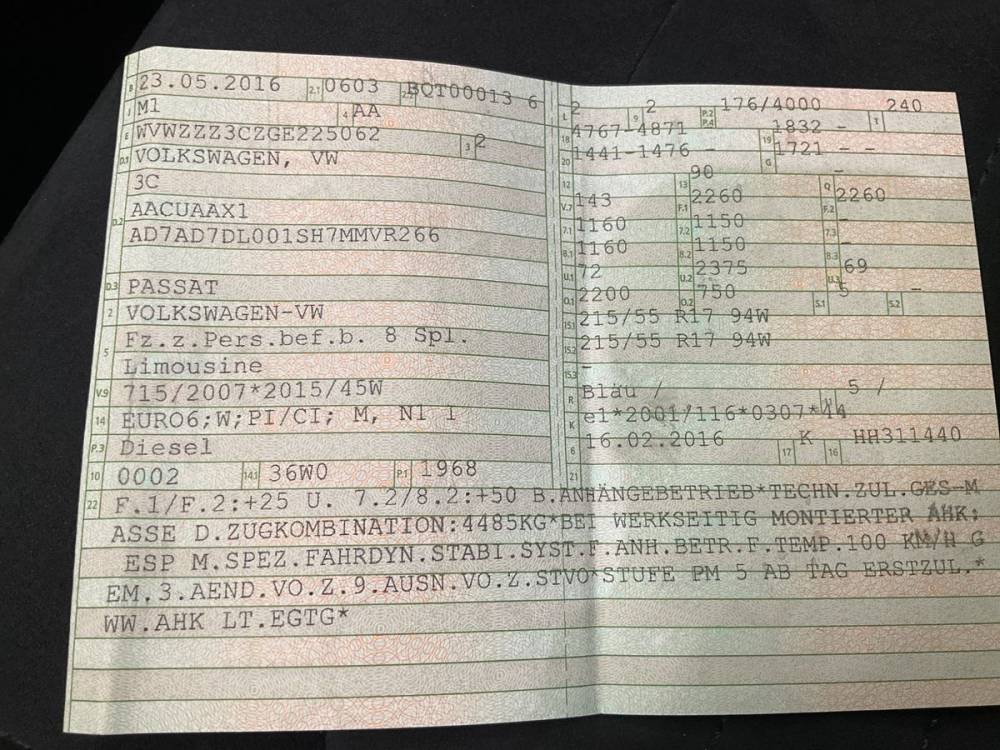 B 23.05.2016 2.1 0603 2.2 BQT00013 6
J M1 4 AA
E WVWZZZ3CZGE225062 3 2
D.1 VOLKSWAGEN, VW
3C
D.2 AACUAAX1
AD7AD7DL001SH7MMVR266
D.3 PASSAT
2 VOLKSWAGEN-VW
5 Fz.z.Pers.bef.b. 8 Spl.
Limousine
V.9 715/2007*2015/45W
14 EURO6;W;PI/CI; M, N1 1
P.3 Diesel
10 0002 14.1 36W0 P.1 1968
L 2 9 2 P.2 P.4 176/4000 T 240
18 4767-4871 19 1832 -
20 1441-1476 - G 1721 - -
12 13 90 Q -
V.7 143 F.1 2260 F.2 2260
7.1 1160 7.2 1150 7.3 -
8.1 1160 8.2 1150 8.3 -
U.1 72 U.2 2375 U.3 69
O.1 2200 O.2 750 S.1 5 S.2 -
15.1 215/55 R17 94W
15.2 215/55 R17 94W
15.3 -
R Blau / 5 /
K e1*2001/116*0307*44
6 16.02.2016 17 K 16 HH311440
21
22 F.1/F.2:+25 U. 7.2/8.2:+50 B.ANHÄNGEBETRIEB*TECHN.ZUL.GES-M
ASSE D.ZUGKOMBINATION:4485KG*BEI WERKSEITIG MONTIERTER AHK:
ESP M.SPEZ.FAHRDYN.STABI.SYST.F.ANH.BETR.F.TEMP.100 KM/H G
EM.3.AEND.VO.Z.9.AUSN.VO.Z.STVO*STUFE PM 5 AB TAG ERSTZUL.*
WW.AHK LT.EGTG*